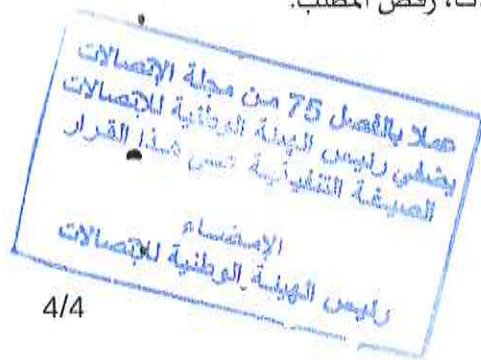 رفض المطلب.
عملا بالفصل 75 من مجلة الإتصالات
يضفي رئيس الهيئة الوطنية للإتصالات
الصيغة التنفيذية على هذا القرار
الإمضاء
رئيس الهيئة الوطنية للإتصالات
4/4